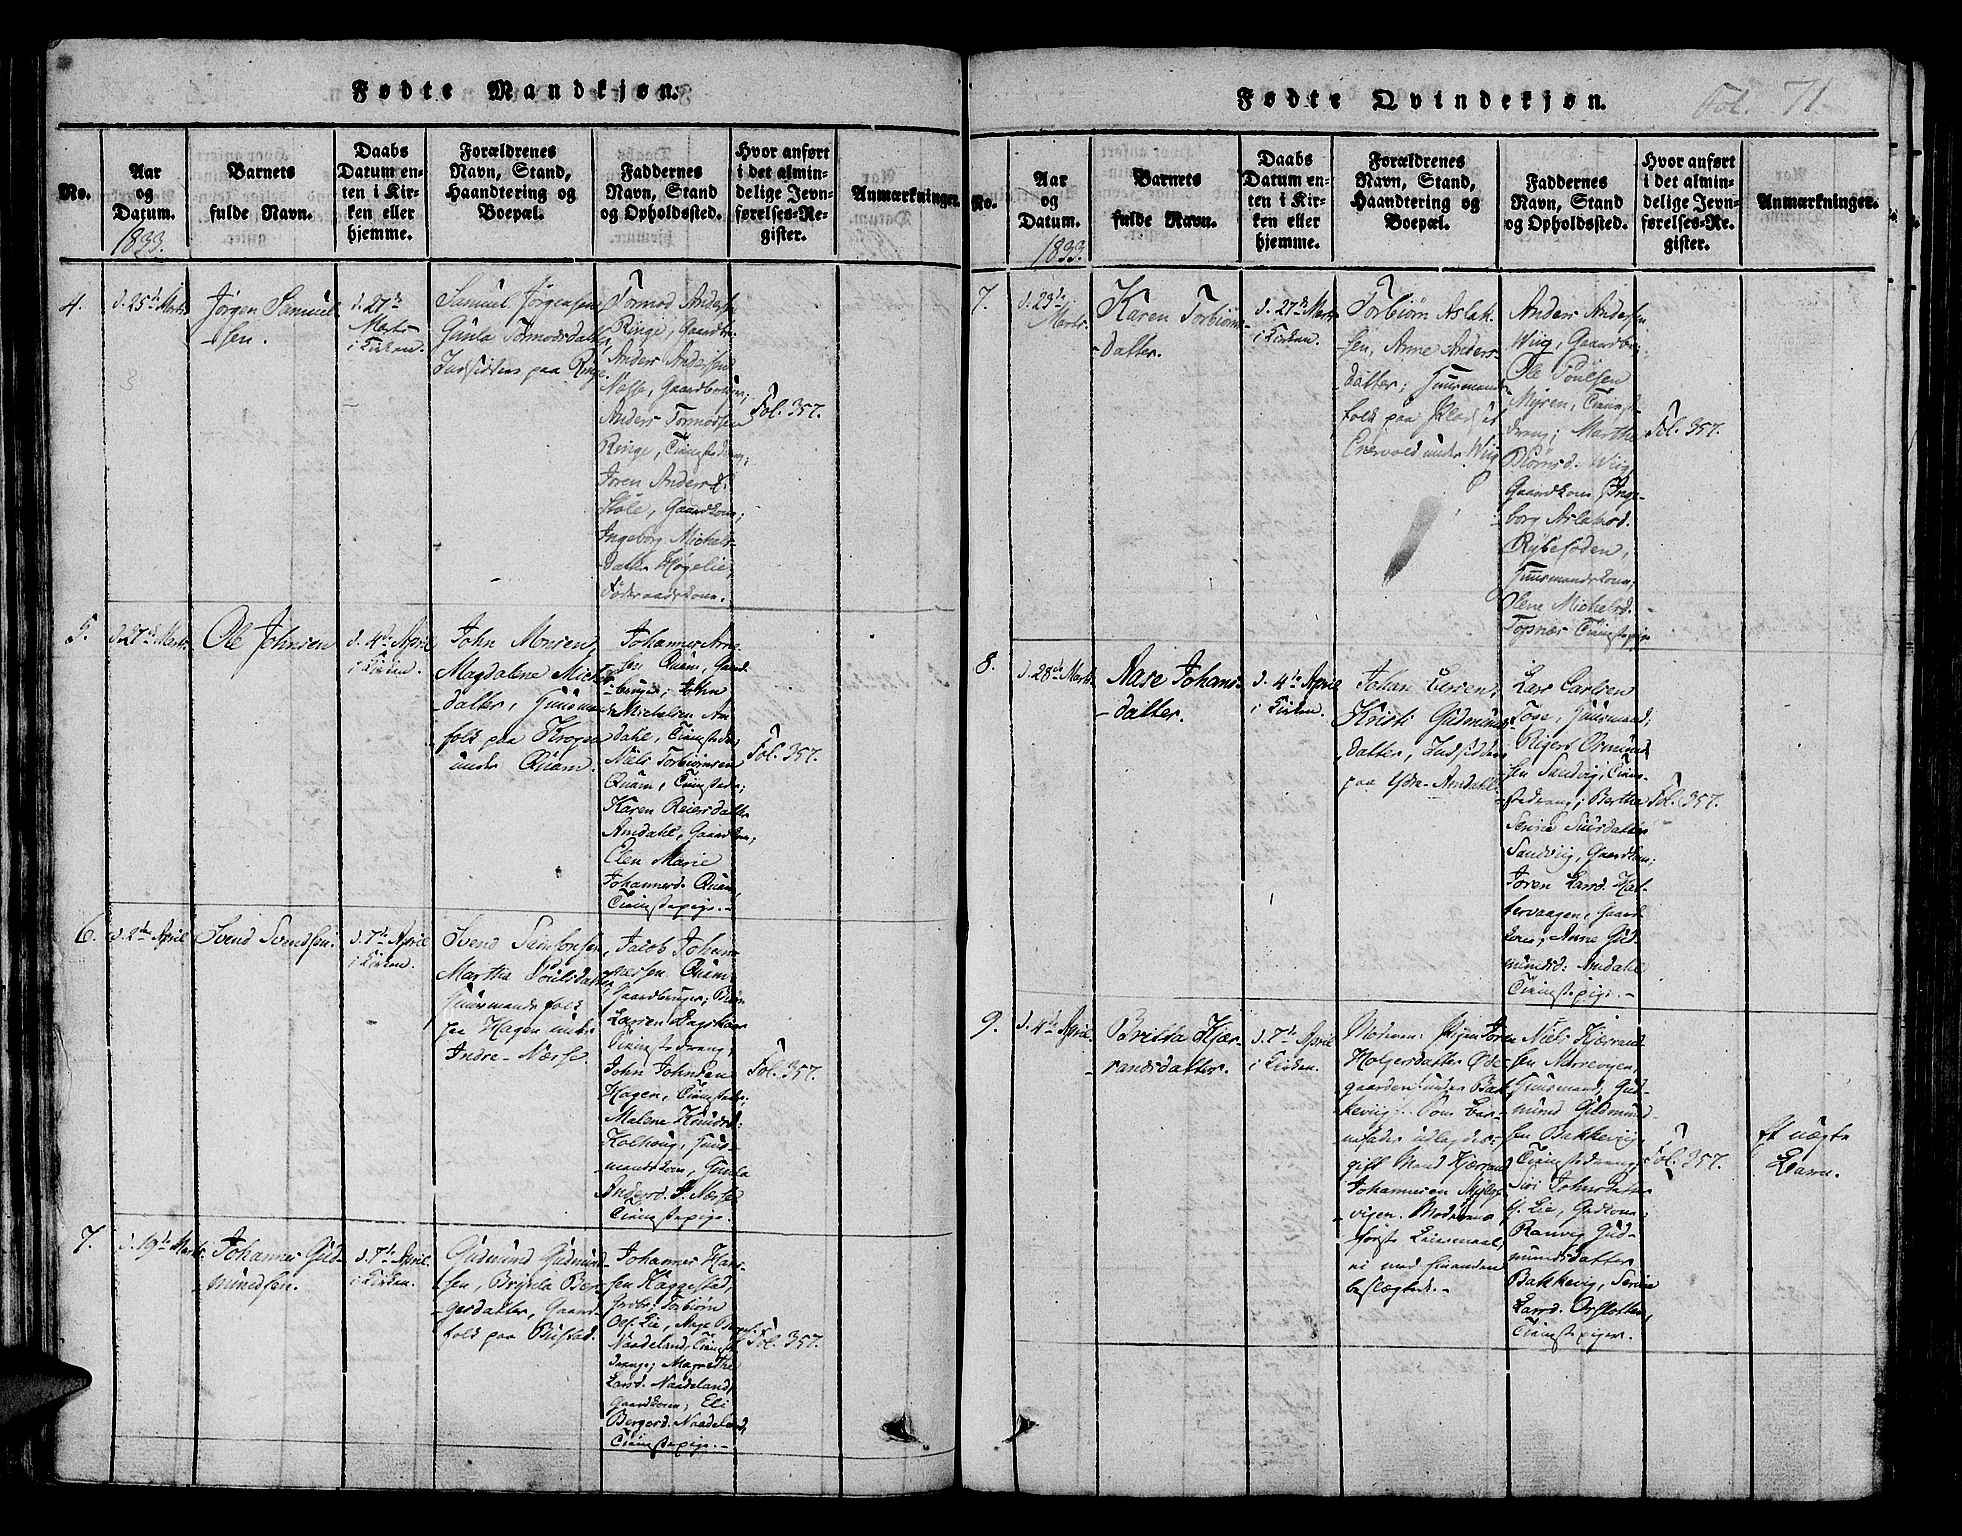 Fødte Mandkjøn.
No.
Aar
og
Datum.
1833.
Barnets
fulde Navn.
Daabs
Datum en-
ten i Kir-
ken eller
hjemme.
Forældrenes
Navn, Stand,
Haandtering og
Boepæl.
Faddernes
Navn, Stand
og Opholdssted.
Hvor anført
i det almin-
delige Jevn-
førelses-Re-
gister.
Anmærkninger.
4.
d. 25de Marts
Jørgen Samuel-
sen.
d. 27de
Marts
i Kirken.
Samuel Jørgensen,
Gunla Tormodsdatter,
Indsidders paa Ringe.
Tormod Anders.
Ringe, Gaardbr.
Anders Andersen
Næsse, Gaardbruger;
Anders Tormodsen
Ringe, Tienstedreng;
Joren Andersd.
Støle, Gaardkone;
Ingeborg Michels-
datter Høgelie,
Føderaadskone.
Fol. 357.
5.
d. 27de Marts
Ole Johnsen
d. 4de April
i Kirken.
John Monsen,
Magdalene Michels-
datter, Huusmands-
folk paa Krogen
under Qvam.
Johannes Arne-
sen Qvam, Gaard-
bruger; John
Michelsen Am-
dahl, Tienstedr.
Niels Torbiørnsen
Qvam, Tienstedr;
Karen Reiersdatter
Amdahl, Gaardkone;
Elen Marie
Johannesd. Qvam,
Tienstepige.
Fol. 357.
6.
d. 2den April
Svend Svendsen.
d. 7de April
i Kirken.
Svend Simonsen,
Martha Poulsdatter,
Huusmandsfolk
paa Hagen under
Indre-Næsse.
Jacob Johan-
nessen Qvam
Gaardbruger; Biørn
Larsen Dagsland
Tienstedreng;
John Johnsen
Hagen, Tienstedr:
Malene
Kolhoug, Huus-
mandskone, Gunla
Andersd. Næsse
Tienstepige.
Fol. 357.
7.
d. 19de Marts
Johannes Gud-
mundsen.
d. 7de April
i Kirken.
Gudmund Gudmund-
sen, Bergla Ber-
gesdatter, Gaard-
folk paa Bustad.
Johannes Han-
sen Haggestad,
Grdbr; Torbiørn
Ols. Lie, Aage Berges.
Naadeland, Tienste-
drenge; Marethe
Larsd. Naadeland,
Gaardkone; Eli
Bergesd. Naadeland,
Tienstepige.
Fol. 357.
Fødte Qvindekjøn.
Fol. 71
No.
Aar
og
Datum.
1833.
Barnets
fulde Navn.
Daabs
Datum en-
ten i Kir-
ken eller
hjemme.
Forældrenes
Navn, Stand,
Haandtering og
Boepæl.
Faddernes
Navn, Stand
og Opholdssted.
Hvor anført
i det almin-
delige Jevn-
førelses-Re-
gister.
Anmærkninger.
7.
d. 23de
Marts.
Karen Torbiørns-
datter.
d. 27de Marts
i Kirken.
Torbiørn Aslak-
sen, Anne Anders-
datter; Huusmands-
folk paa Pladset
under Wiig
Anders Andersen
Wiig, Gaardbr;
Ole Poulsen
Myren, Tienste-
dreng; Marthe
Biørnsd. Wiig
Gaardkone; Inge-
borg Aslaksd.
Huusmandskone;
Olene Michelsd.
Topnæs Tienstepige
Fol. 357.
8.
d. 28de Marts.
Aase Johans-
datter.
d. 4de April
i Kirken.
Johan Larsen,
Kristi Gudmunds-
datter, Indsidders
paa Ydre-Amdahl.
Lars Carlsen
Tose, Huusmand;
Reigert Osmund-
sen Sandvig, Tien-
stedreng; Berthe
Serine Siursdatter
Sandviig, Gaardkone;
Joren Larsd. Kal-
tervaagen, Gaard-
kone; Anne Gud-
mundsd: Amdahl
Tienstepige.
Fol. 357.
9.
d. 4de April.
Britta Kjær-
randsdatter.
d. 7de April
i Kirken.
Moderen: Pigen Joren
Holgersdatter Øde-
gaarden under Bak-
kevig. Som Bar-
nefader udlagdes:
gift Mand Kjærran
Johannesen Myls-
vigen. Moderens
første Leiermaal,
ei med hinanden
beslægtede.
Niels Kjærrand-
sen Mærrevigen,
Huusmand; Gud-
mund Gudmund-
sen Bakkevig,
Tienstedreng;
Siri Johnsdatter
Lie, Gaardkone;
Ranvig Gud-
mundsdatter
Bakkevig, Serine
Larsd.
Tienstepiger.
Fol. 357.
Et uægte
Barn.